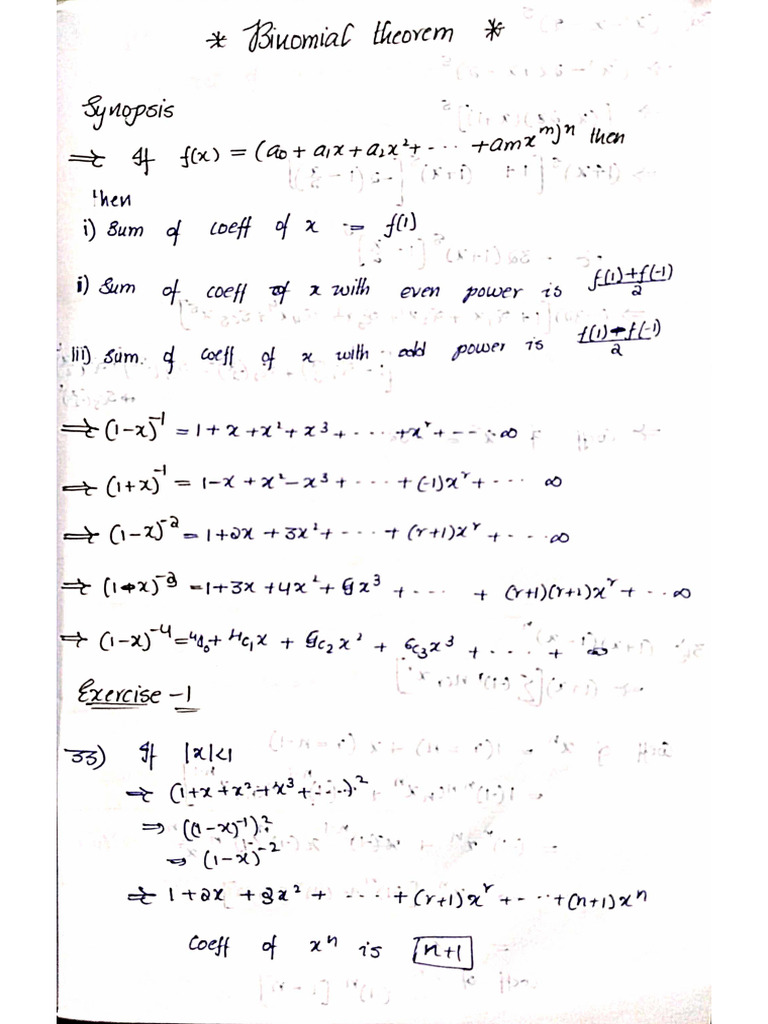 * Binomial theorem *
Synopsis
⇒ If f(x) = (a₀ + a₁x + a₂x² + ⋯ + amx^m)^n then
then
i) Sum of coeff of x = f(1)
ii) Sum of coeff of x with even power is (f(1)+f(-1))/2
iii) Sum of coeff of x with odd power is (f(1)-f(-1))/2
⇒ (1-x)^-1 = 1 + x + x² + x³ + ⋯ + x^r + ⋯ ∞
⇒ (1+x)^-1 = 1-x + x² - x³ + ⋯ + (-1)x^r + ⋯ ∞
⇒ (1-x)^-2 = 1+2x + 3x² + ⋯ + (r+1)x^r + ⋯ ∞
⇒ (1-x)^-3 = 1+3x + 4x² + x³ + ⋯ + (r+1)(r+2)x^r + ⋯ ∞
⇒ (1-x)^-4 = + 4c₁x + c₂x² + 6c₃x³ + ⋯ + ∞
Exercise -1
33) If |x|<1
⇒ (1+x+x²+x³+⋯)²
⇒ ((1-x)^-1)²
⇒ (1-x)^-2
⇒ 1+2x + 3x² + ⋯ + (r+1)x^r + ⋯ + (n+1)x^n
Coeff of x^n is n+1